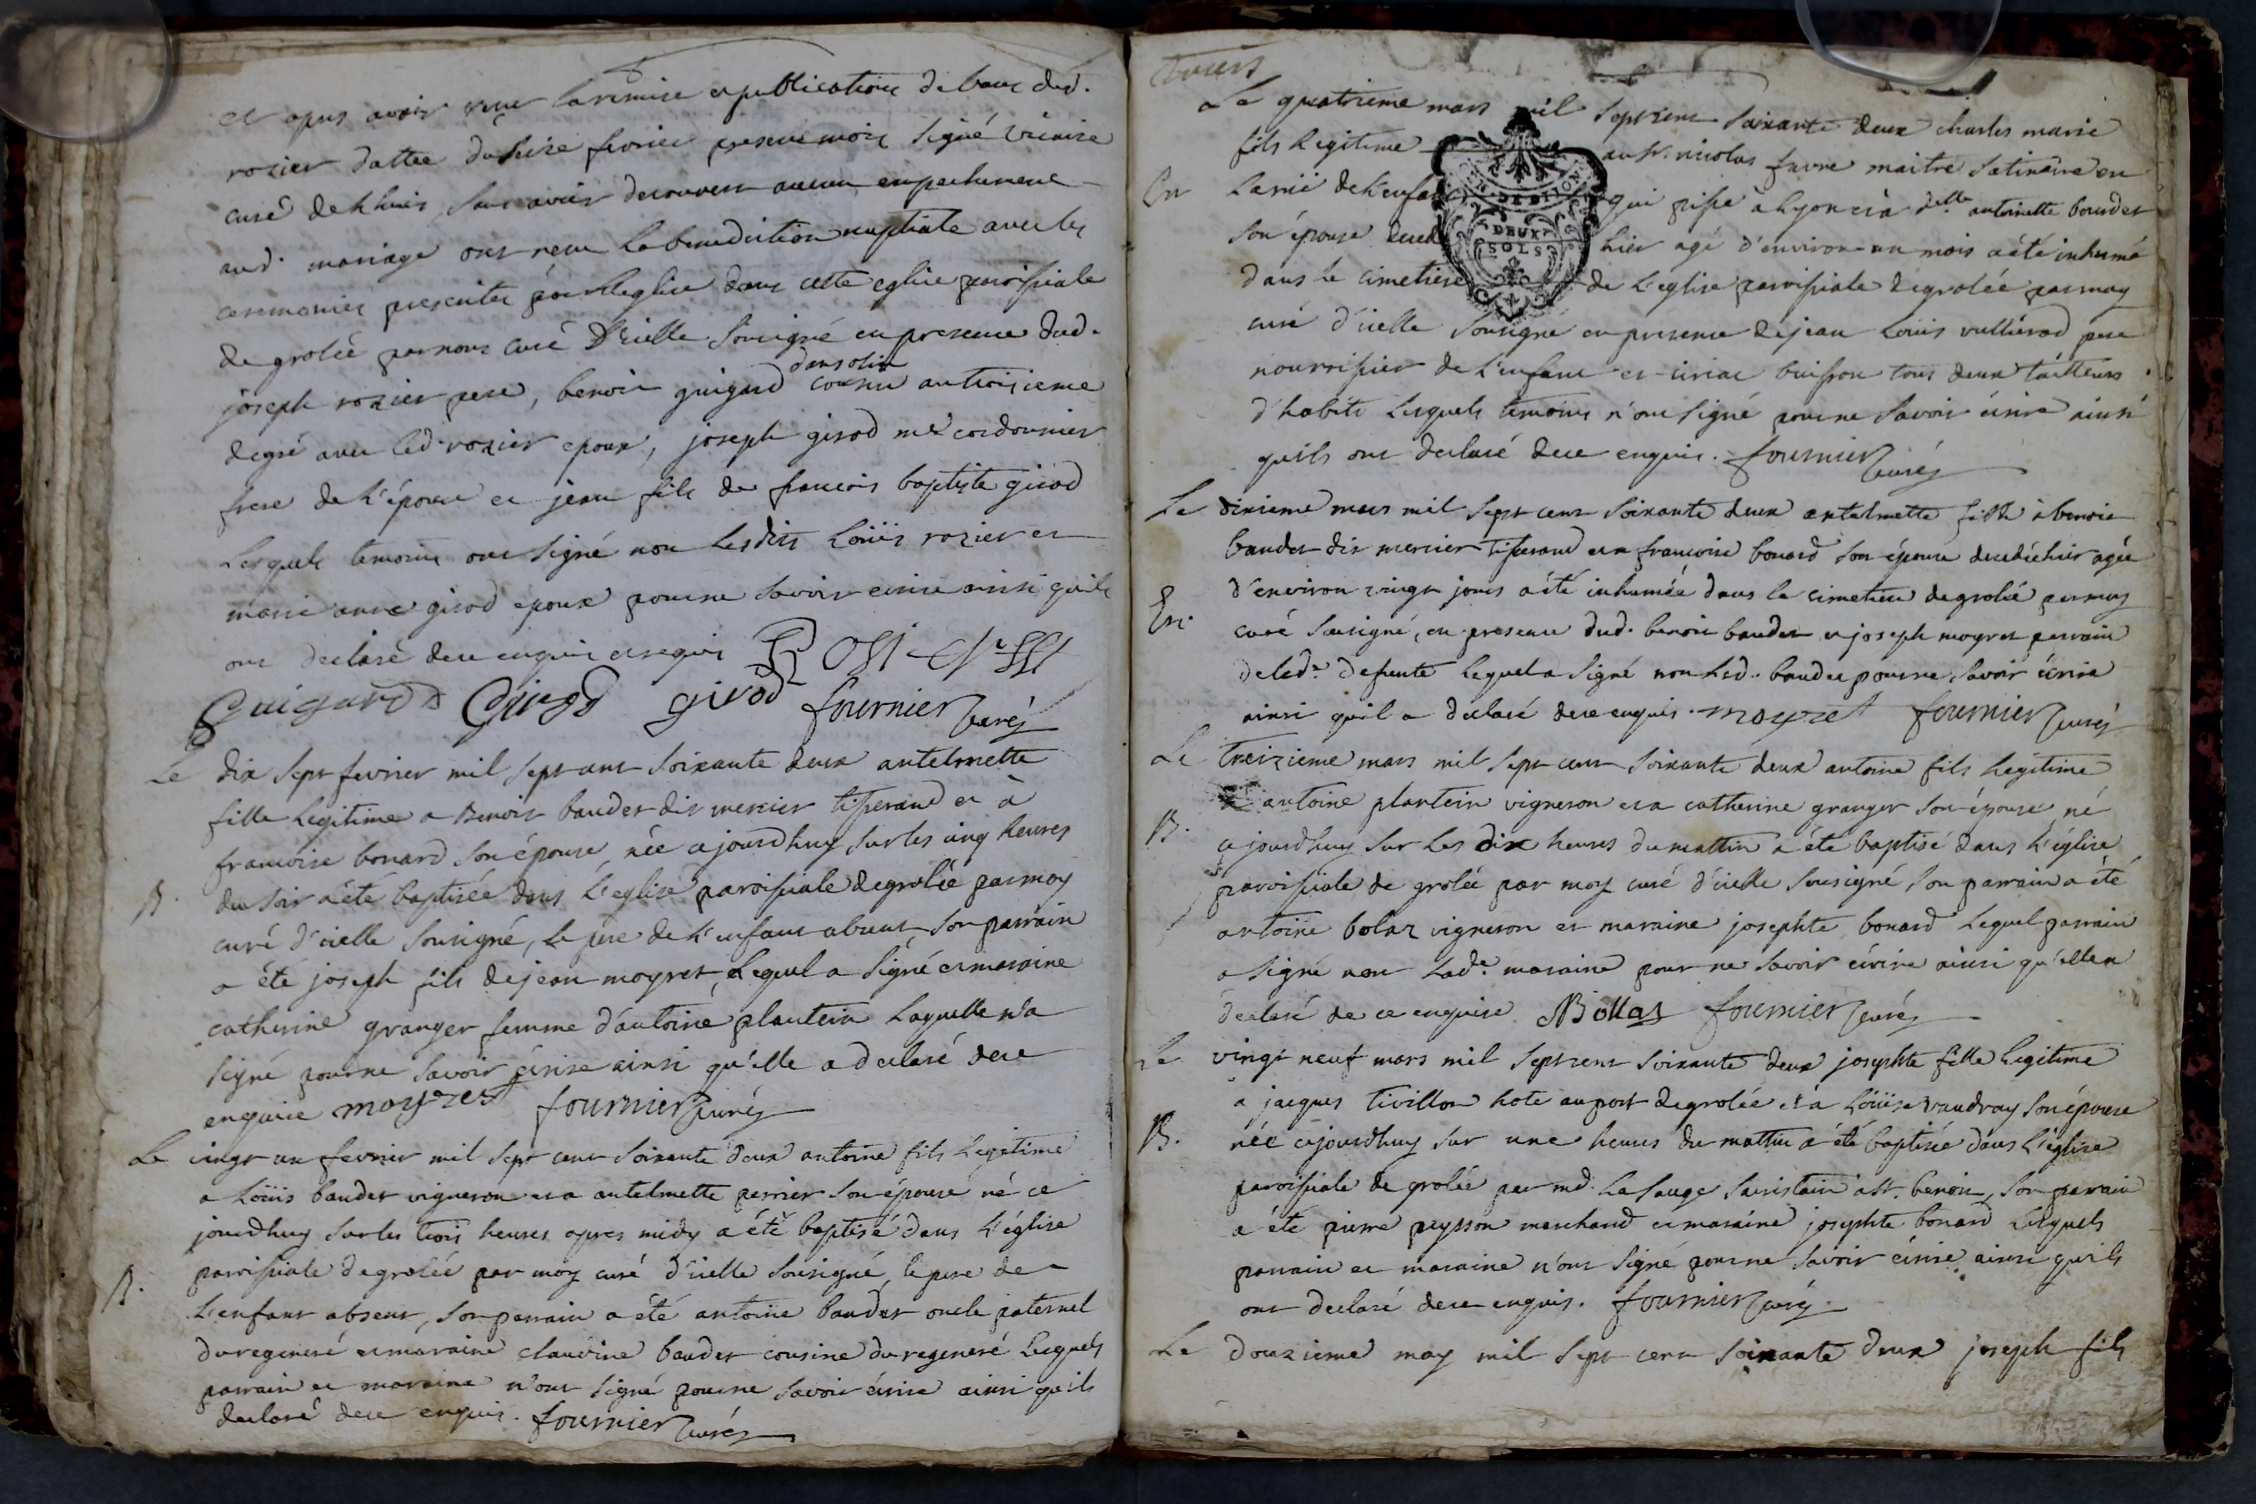 et apres avoir veue la remise et publication de bans dud.
rozier dattée du seize fevrier present mois signé
curé de lhuis, sans avoir decouvert aucun empechement
aud. mariage ont reçu la benediction nuptiale avec les
ceremonies prescrites par l'eglise dans cette eglise paroissiale
de grolée par nous curé d'icelle sousigné en presence dud.
joseph rozier pere, benoit guigard cousin au troisieme
degré avec led. rozier epoux, joseph girod me cordonnier
frere de l'épouse et jean fils de francois baptiste girod
lesquels temoins ont signé non lesdits Loüis rozier et
marie anne girod epoux pour ne savoir ecrire ainsi qu'ils
ont declaré de ce enquis et requis
guigard Girod girod fournier curé
Le dix sept fevrier mil sept cent soixante deux antelmette
fille legitime a Benoit baudet dit mercier tisserand et à
francoise bonard son épouse, née ajourdhuy sur les cinq heures
B. du soir a été baptisée dans l'eglise paroissiale de grolée par moy
curé d'icelle sousigné, le pere de l'enfant absent, son parrain
a été joseph fils de jean moyret, lequel a signé et maraine
catherine granger femme d'antoine plantein laquelle n'a
signé pour ne savoir écrire ainsi qu'elle a declaré de ce
enquise moyret fournier curé
Le vingt un fevrier mil sept cent soixante deux antoine fils legitime
a Loüis baudet vigneron et a antelmette perrier son épouse né ce
jourdhuy sur les trois heures apres midy a été baptisé dans l'église
paroissiale de grolée par moy curé d'icelle sousigné, le pere de
B. l'enfant absent, son parrain a été antoine baudet oncle paternel
du regeneré et maraine claudine baudet cousine du regeneré lesquels
parrain et maraine n'ont signé pour ne savoir écrire ainsi qu'ils
declaré de ce enquis. fournier curé
Le quatrieme mars mil sept cent soixante deux charles marie
fils legitime au sr. nicolas favre maitre satinaire en
En la rüe de l'enfant qui pisse a Lyon et à delle antoinette bourdet
son épouse hier agé d'environ un mois a été inhumé
dans le cimetiere de l'eglise paroissiale de grolée par moy
curé d'icelle sousigné en presence de jean Loüis vulliérod pere
nourrissier de l'enfant et ciriac buisson tous deux tailleurs
d'habits lesquels temoins n'ont signé pour ne savoir écrire ainsi
qu'ils ont declaré de ce enquis. fournier curé
DEUX
SOLS
Le dixieme mars mil sept cent soixante deux antelmette fille à benoit
baudet dit mercier tisserand et a francoise bonard son épouse decedée hier agée
d'environ vingt jours a été inhumée dans le cimetiere de grolée par moy
En. curé sousigné, en presence dud. benoit baudet et joseph moyret parrain
de lade. defunte lequel a signé non led. baudet pour ne savoir écrire
ainsi qu'il a declaré de ce enquis. moyret fournier curé
Le treizieme mars mil sept cent soixante deux antoine fils legitime
antoine plantein vigneron et a catherine granger son épouse, né
B. ajourdhuy sur les dix heures du mattin a été baptisé dans l'église
paroissiale de grolée par moy curé d'icelle sousigné son parrain a été
antoine bolaz vigneron et maraine josephte bonard lequel parrain
a signé non lade. maraine pour ne savoir écrire ainsi qu'elle a
declaré de ce enquise Bollaz fournier curé
Le vingt neuf mars mil sept cent soixante deux josephte fille legitime
à jacques tivillon hote au port de grolée et à Loüise vaudray son épouse
B. née ajourdhuy sur une heures du mattin a été baptisée dans l'église
paroissiale de grolée par md. son parrain
a été pierre peysson marchand et maraine josephte bonard lesquels
parrain et maraine n'ont signé pour ne savoir écrire ainsi qu'ils
ont declaré de ce enquis. fournier curé
Le douzieme may mil sept cent soixante deux joseph fils